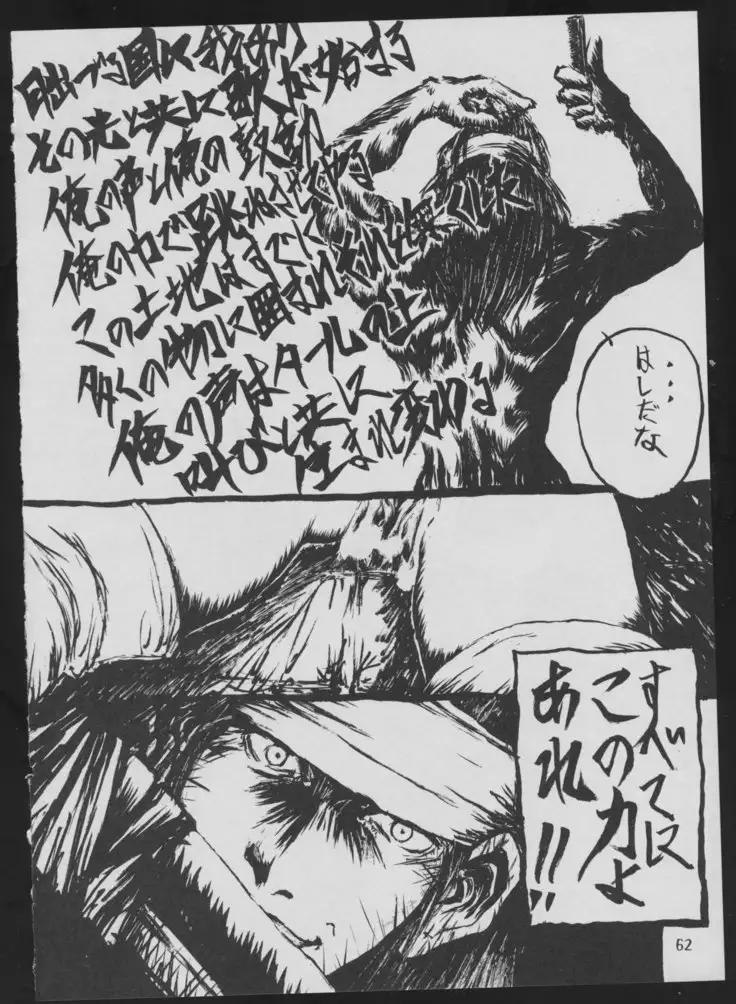 日出づる国に我あり
その光と共に歌が始まる
俺の声と俺の鼓動
俺の力で跳ねさせてやる
この土地はすでに
多くの物に囲まれそれを無くした
俺の声はタールの上
叫びと共に
生まれ変わる
・・・
はしだな
すべてに
この力よ
あれ!!
62